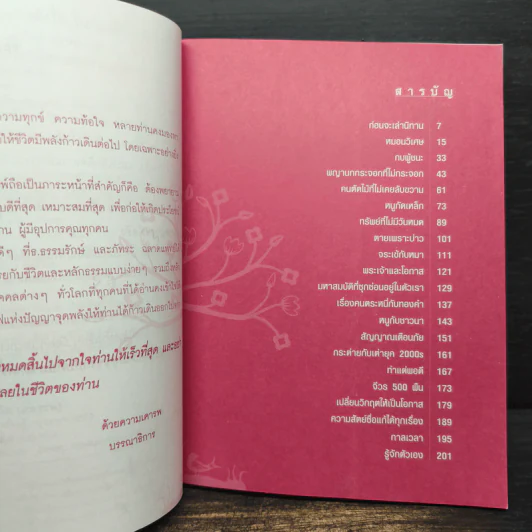 ความทุกข์ ความท้อใจ หลายท่านคง
ให้ชีวิตมีพลังก้าวเดินต่อไป โดยเฉพาะอย่างยิ่ง
ถือเป็นภาระหน้าที่สำคัญก็คือ ต้อง
ดีที่สุด เหมาะสมที่สุด เพื่อก่อให้เกิด
ผู้มีอุปการคุณทุกคน
ดีๆ ที่ธ.ธรรมรักษ์ และภัทระ ฉลาดแพทย์
กับชีวิตและหลักธรรมแบบง่ายๆ รวมถึง
คคลต่างๆ ทั่วโลกที่ทุกคนที่ได้อ่านคง
แห่งปัญญาจุดพลังให้ท่านได้ก้าวเดิน
หมดสิ้นไปจากใจท่านให้เร็วที่สุด และ
เลยในชีวิตของท่าน
ด้วยความเคารพ
บรรณาธิการ
สารบัญ
ก่อนจะเล่านิทาน 7
หมอนวิเศษ 15
กบผู้ชนะ 33
พญานกกระจอกที่ไม่กระจอก 43
คนตัดไม้ที่ไม่เคยลับขวาน 61
หนูกัดเหล็ก 73
ทรัพย์ที่ไม่มีวันหมด 89
ตายเพราะบ่าว 101
จระเข้กับหมา 111
พระเจ้าและโอกาส 121
มหาสมบัติที่ซุกซ่อนอยู่ในตัวเรา 129
เรื่องคนตระหนี่กับทองคำ 137
หนูกับชาวนา 143
สัญญาณเตือนภัย 151
กระต่ายกับเต่ายุค 2000s 161
ทำแต่พอดี 167
จีวร 500 ผืน 173
เปลี่ยนวิกฤตให้เป็นโอกาส 179
ความสัตย์ซื่อแก้ได้ทุกเรื่อง 189
กาลเวลา 195
รู้จักตัวเอง 201